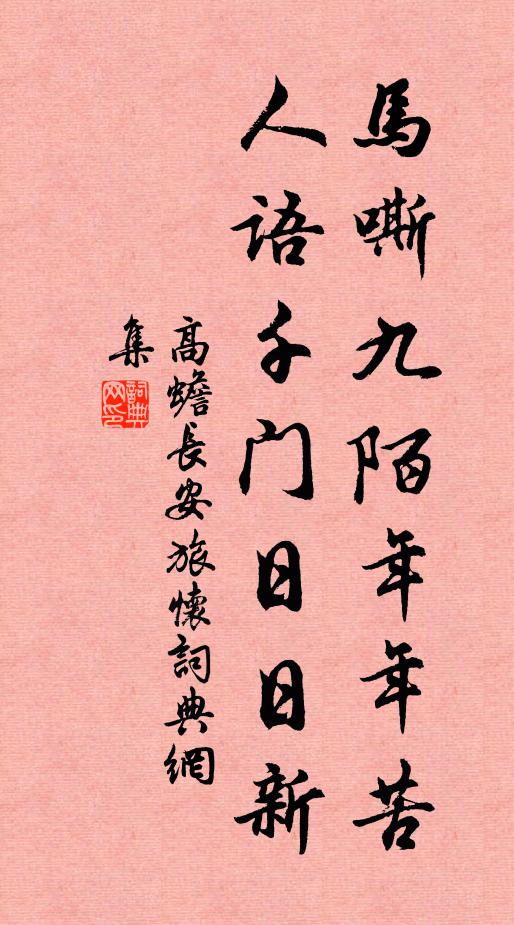 馬嘶九陌年年苦
人语千门日日新
高蟾長安旅懷詞典網
集
詞典
网印